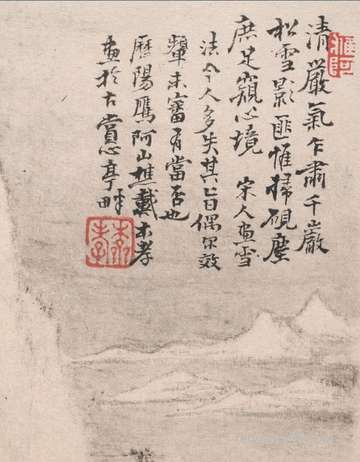 清嚴氣乍肅千巖
松雪影匪惟掃硯塵
庶足窺心境 宋人畫雪
法今人多失其旨偶爾效
顰未審有當否也
歷陽鷹阿山樵戴本孝
畫於古嘗心亭畔
鷹阿
本孝